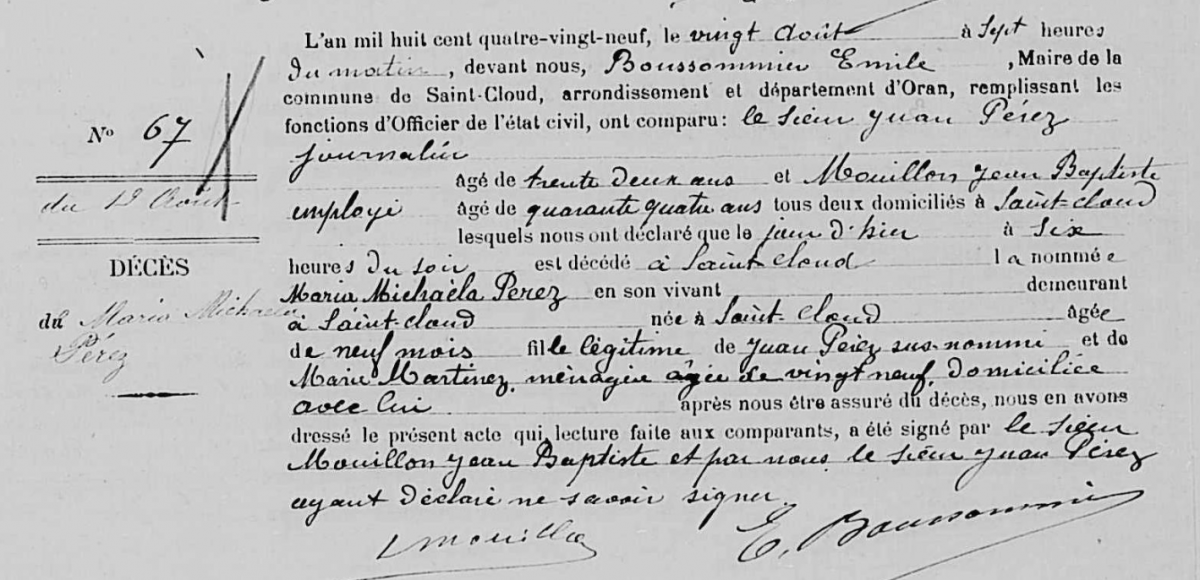 L'an mil huit cent quatre-vingt-neuf, le vingt Août à Sept heures
du matin, devant nous, Boussommier Emile, Maire de la
commune de Saint-Cloud, arrondissement et département d'Oran, remplissant les
fonctions d'Officier de l'état civil, ont comparu: le sieur Juan Pérez
journalier
âgé de trente deux ans et Mouillon Jean Baptiste
employé âgé de quarante quatre ans tous deux domiciliés à Saint-Cloud
lesquels nous ont déclaré que le jour d'hier à six
heures du soir est décédé à Saint Cloud la nommée
Maria Michaëla Pérez en son vivant demeurant
à Saint-Cloud née à Saint Cloud âgée
de neuf mois fille légitime de Juan Pérez sus-nommé et de
Marie Martinez, ménagère agée de vingt neuf, domiciliée
avec lui après nous être assuré du décès, nous en avons
dressé le présent acte qui, lecture faite aux comparants, a été signé par le sieur
Mouillon Jean Baptiste et par nous, le sieur Juan Pérez
ayant déclaré ne savoir signer.
Mouillon
E. Boussommier
No 67
du 19 Août
DÉCÈS
de Maria Michaëla
Pérez